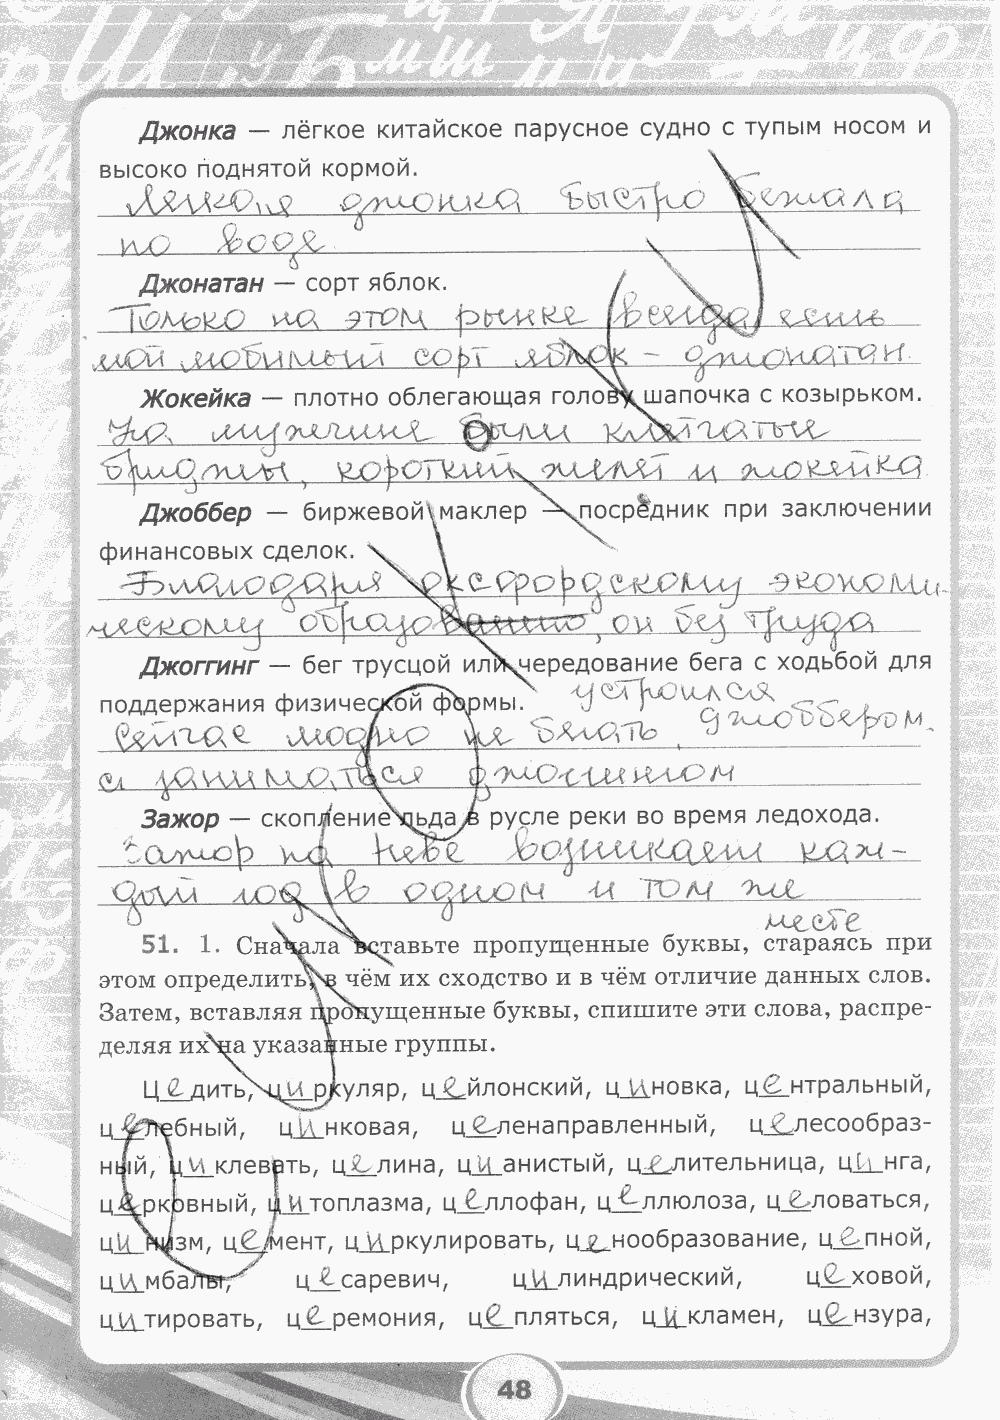 Джонка — лёгкое китайское парусное судно с тупым носом и
высоко поднятой кормой.
Лёгкая джонка быстро бежала
по воде.
Джонатан — сорт яблок.
Только на этом рынке всегда есть
мой любимый сорт яблок – джонатан.
Жокейка — плотно облегающая голову шапочка с козырьком.
На мужчине были клетчатые
бриджы, короткий жилет и жокейка
Джоббер — биржевой маклер — посредник при заключении
финансовых сделок.
Благодаря оксфордскому экономи-
ческому образованию, он без труда
Джоггинг — бег трусцой или чередование бега с ходьбой для
поддержания физической формы. устроился
Сейчас модно не бегать, джоббером.
а заниматься джоггингом
Зажор — скопление льда в русле реки во время ледохода.
Зажор на Неве возникает каж-
дый год в одном и том же
месте
51. 1. Сначала вставьте пропущенные буквы, стараясь при
этом определить, в чём их сходство и в чём отличие данных слов.
Затем, вставляя пропущенные буквы, спишите эти слова, распре-
деляя их на указанные группы.
Цедить, циркуляр, цейлонский, циновка, центральный,
целебный, цинковая, целенаправленный, целесообраз-
ный, циклевать, целина, цианистый, целительница, цинга,
церковный, цитоплазма, целлофан, целлюлоза, целоваться,
цинизм, цемент, циркулировать, ценообразование, цепной,
цимбалы, цесаревич, цилиндрический, цеховой,
цитировать, церемония, цепляться, цикламен, цензура,
48